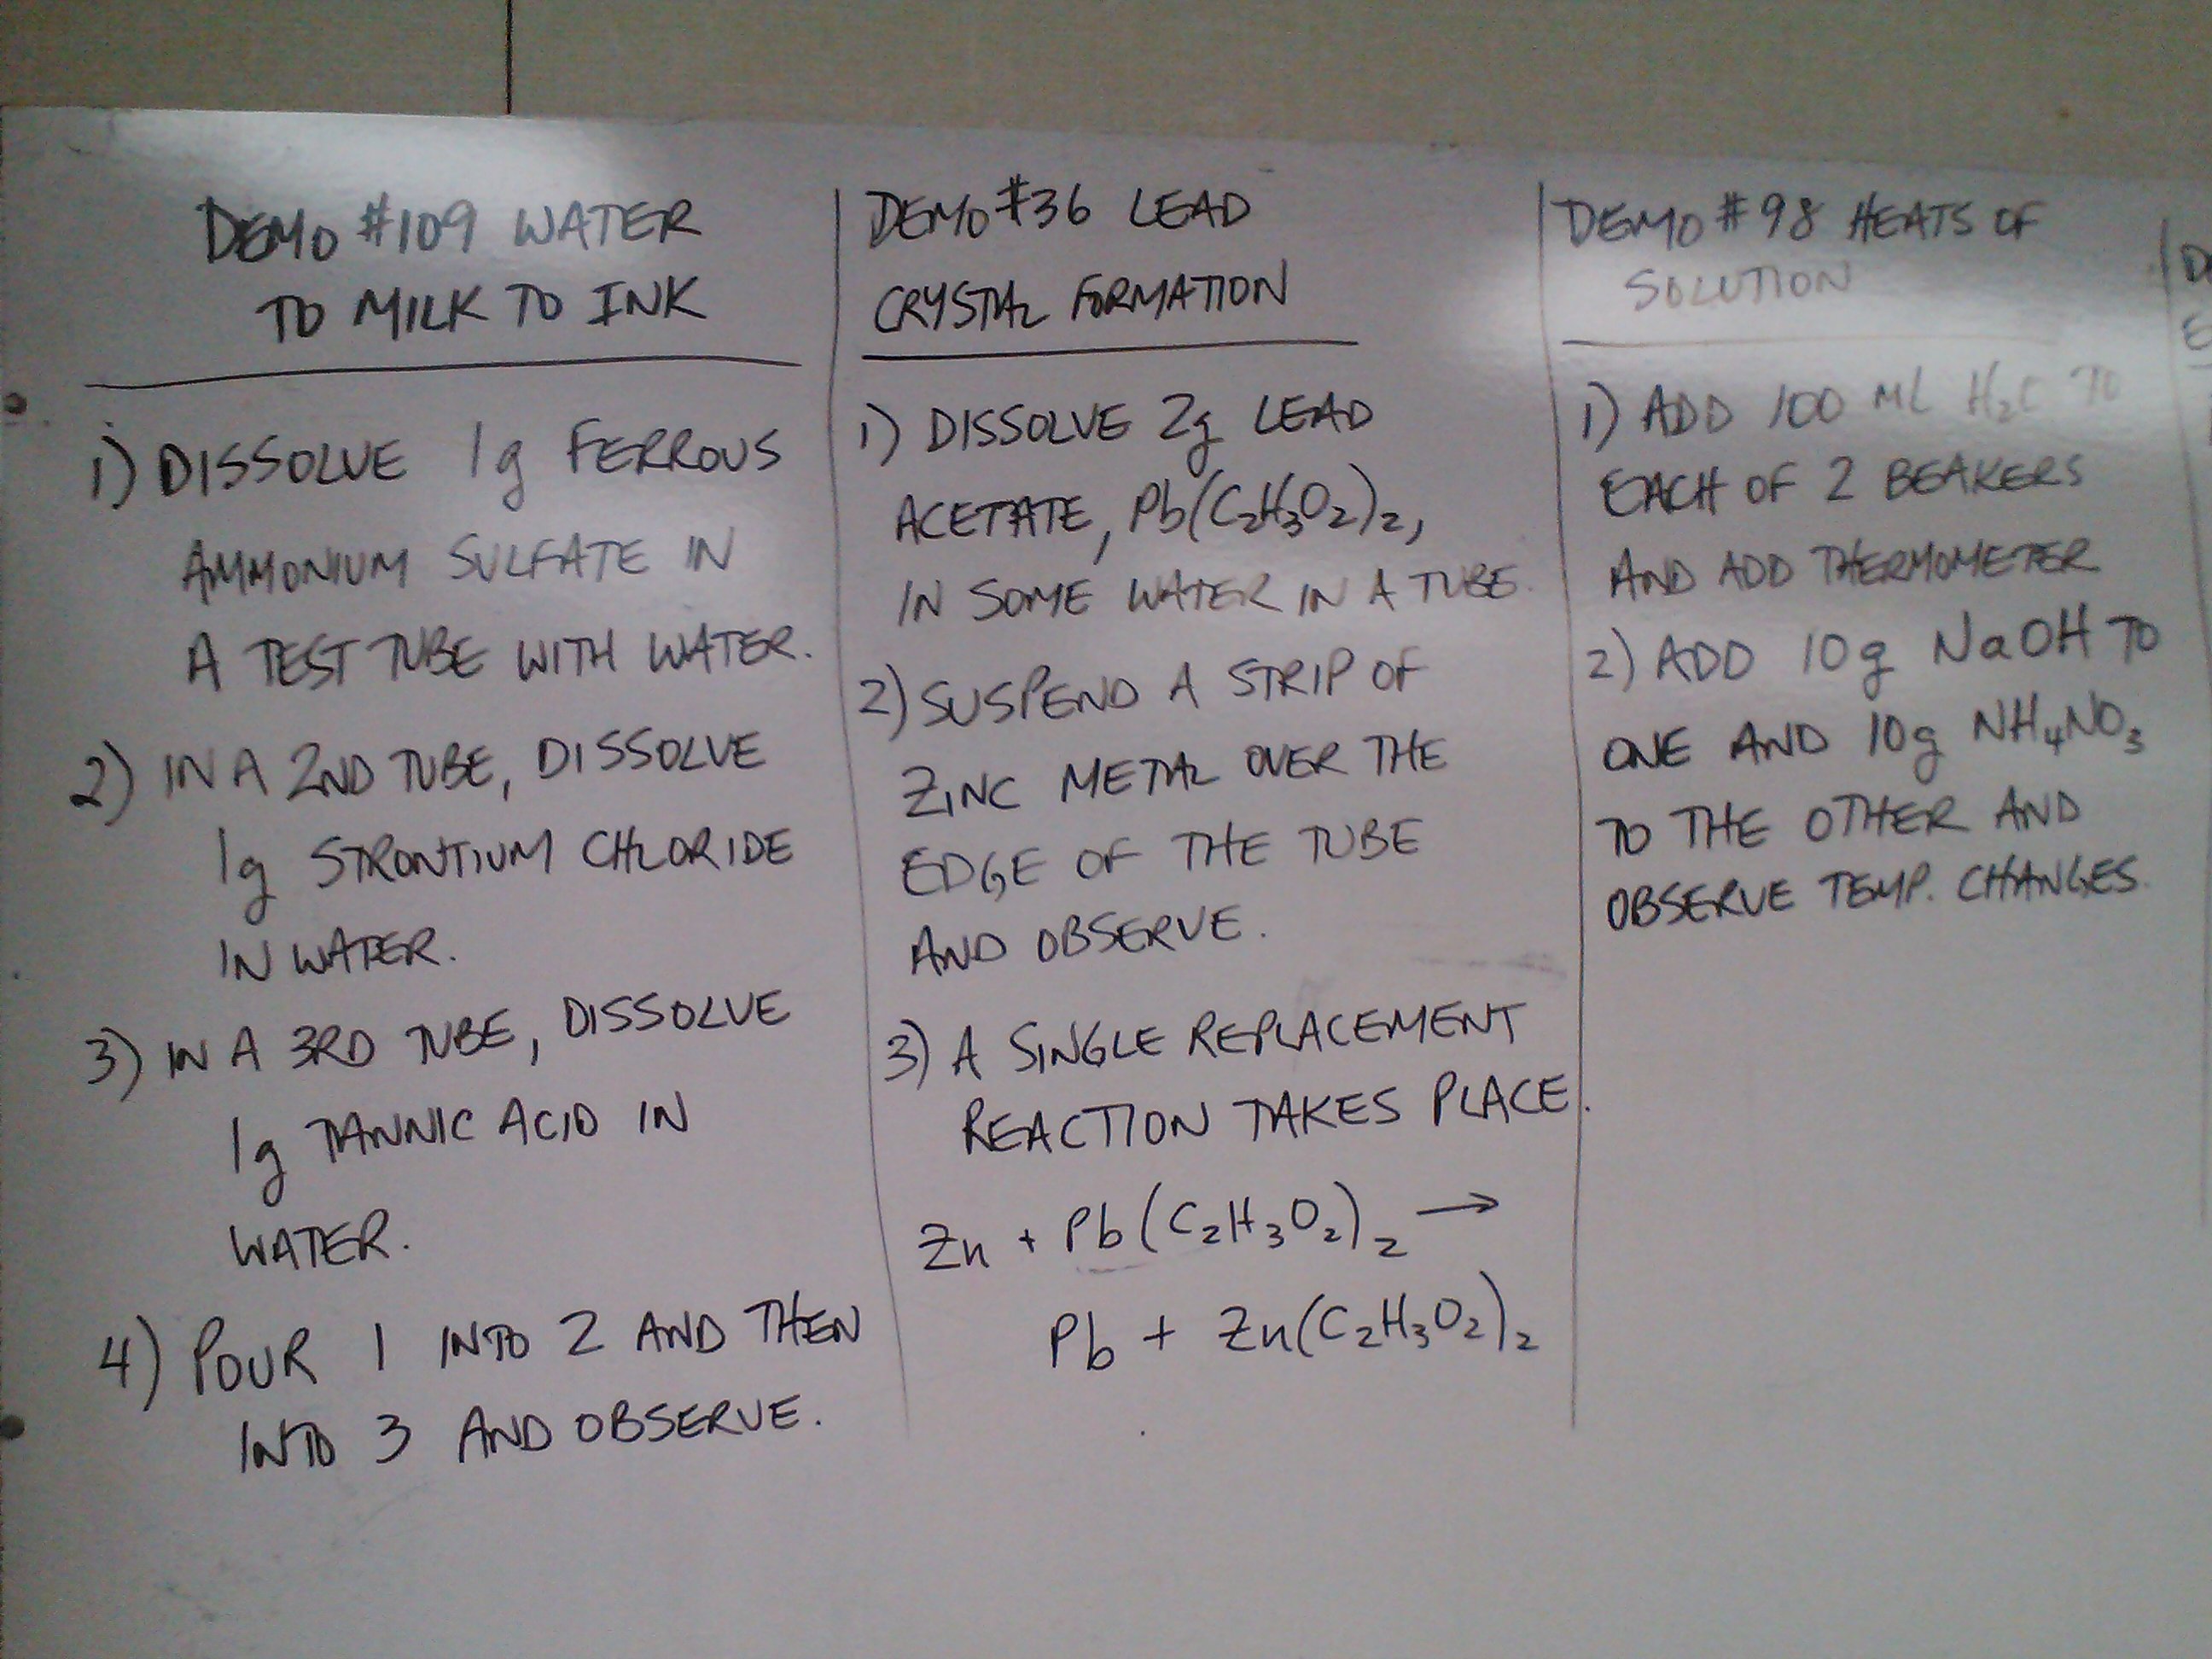 DEMO #109 WATER
TO MILK TO INK
1) DISSOLVE 1g FERROUS
AMMONIUM SULFATE IN
A TEST TUBE WITH WATER.
2) IN A 2ND TUBE, DISSOLVE
1g STRONTIUM CHLORIDE
IN WATER.
3) IN A 3RD TUBE, DISSOLVE
1g TANNIC ACID IN
WATER.
4) POUR 1 INTO 2 AND THEN
INTO 3 AND OBSERVE.
DEMO #36 LEAD
CRYSTAL FORMATION
1) DISSOLVE 2g LEAD
ACETATE, Pb(C₂H₃O₂)₂,
IN SOME WATER IN A TUBE.
2) SUSPEND A STRIP OF
ZINC METAL OVER THE
EDGE OF THE TUBE
AND OBSERVE.
3) A SINGLE REPLACEMENT
REACTION TAKES PLACE.
Zn + Pb(C₂H₃O₂)₂ →
Pb + Zn(C₂H₃O₂)₂
DEMO #98 HEATS OF
SOLUTION
1) ADD 100 ML H₂O TO
EACH OF 2 BEAKERS
AND ADD THERMOMETER
2) ADD 10g NaOH TO
ONE AND 10g NH₄NO₃
TO THE OTHER AND
OBSERVE TEMP. CHANGES.